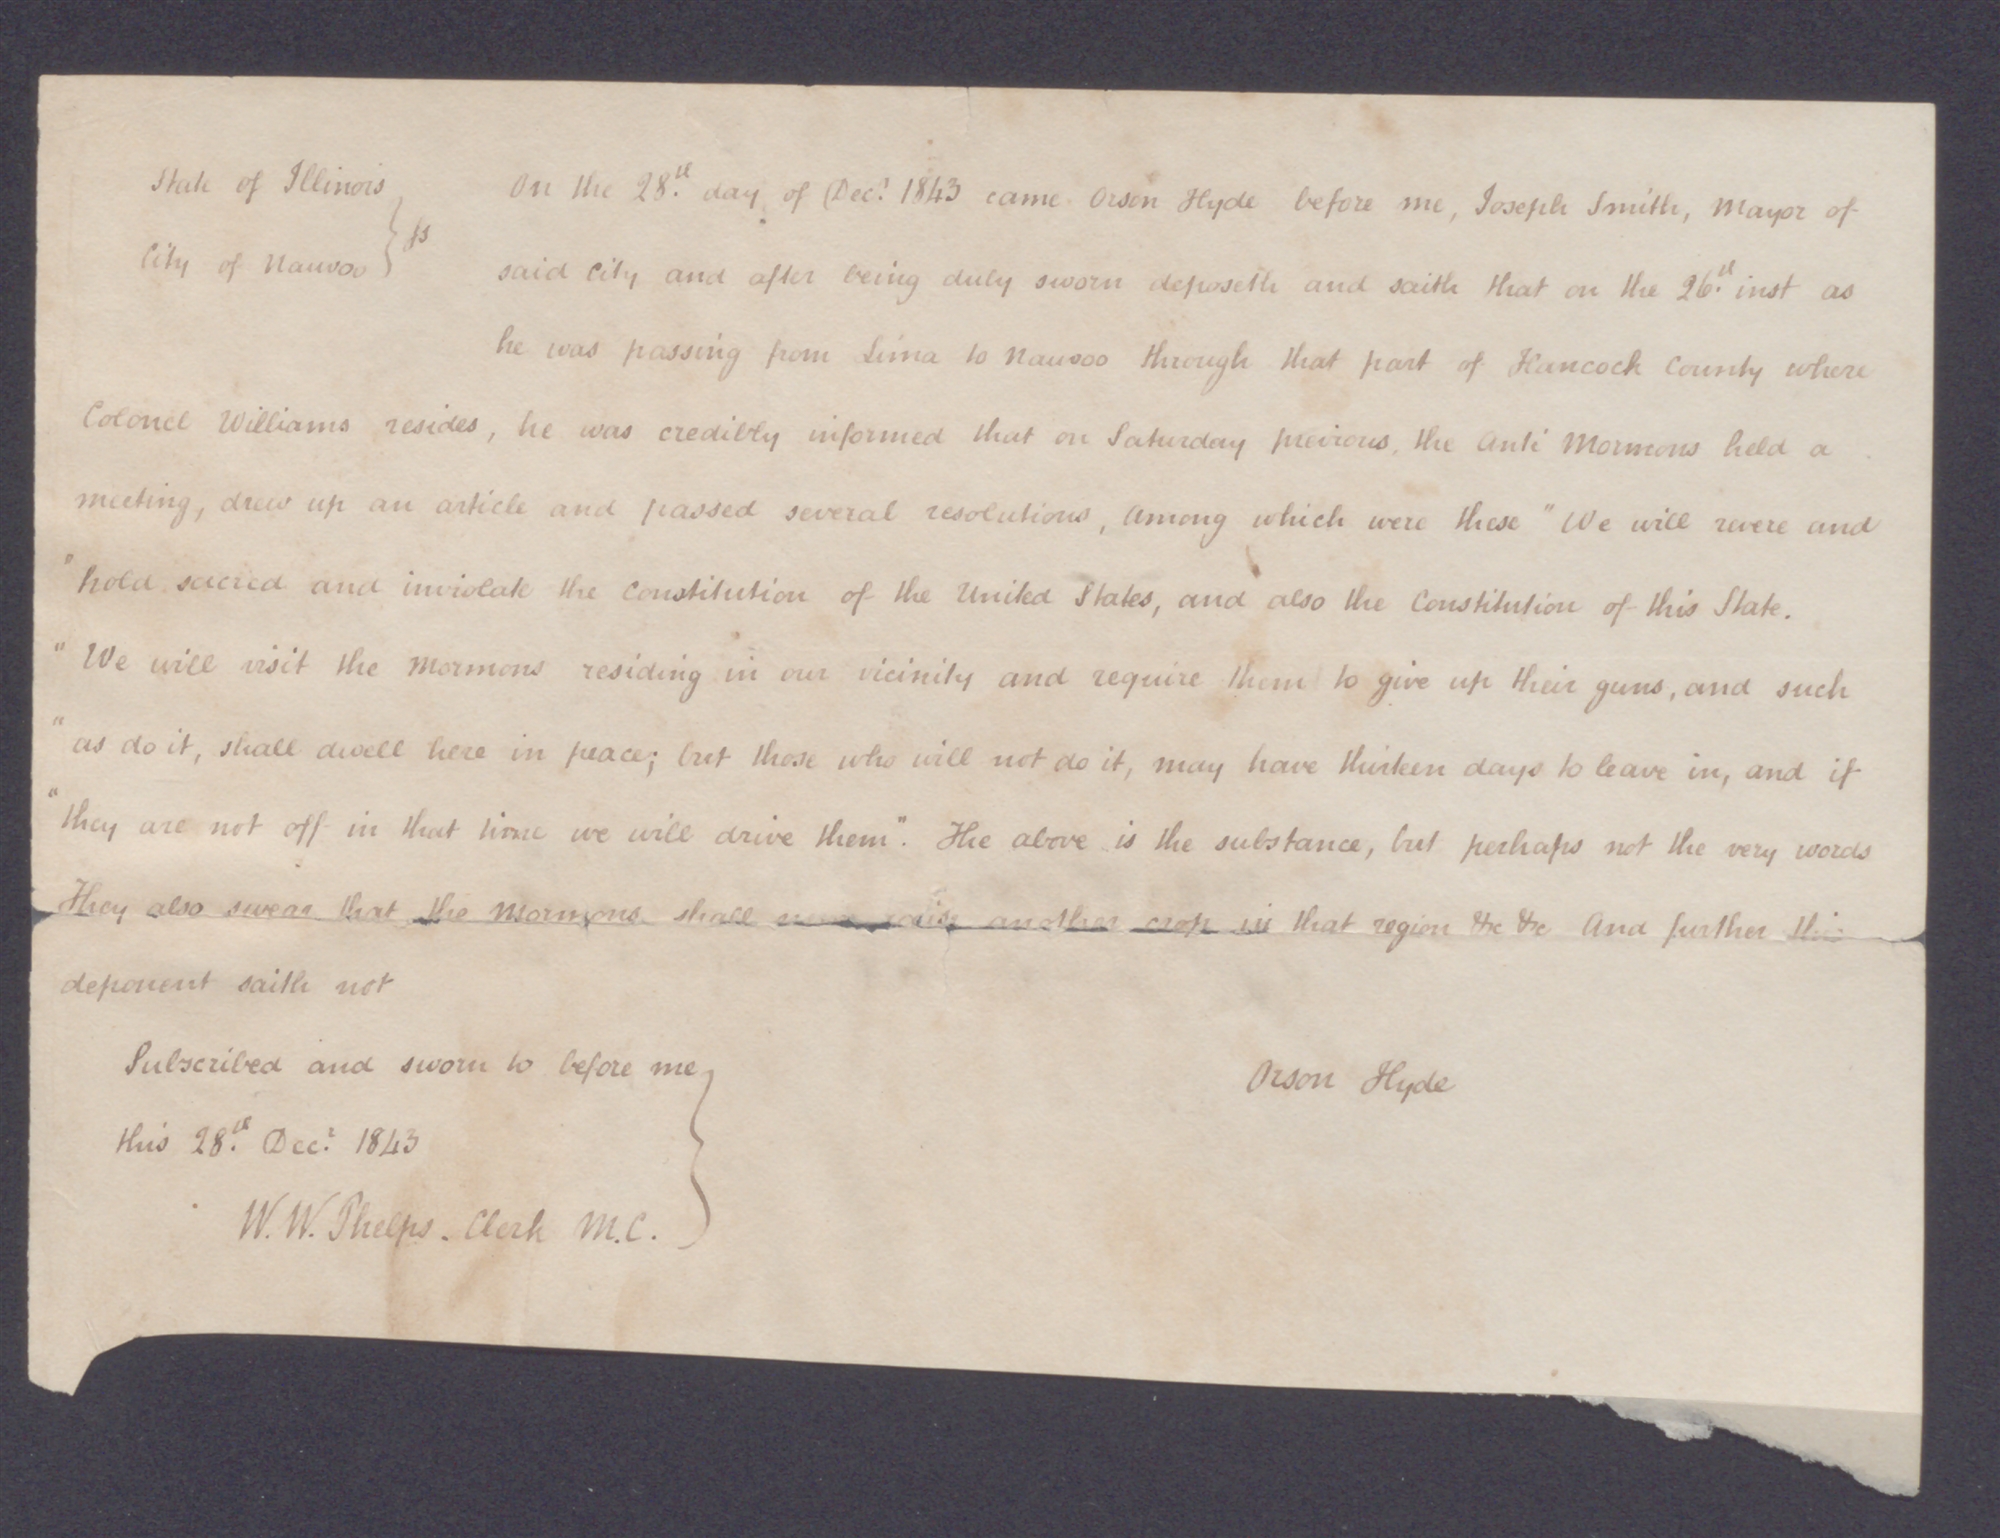 State of Illinois } ss
City of Nauvoo
On the 28th day of Decr 1843 came Orson Hyde before me, Joseph Smith, Mayor of
said City and after being duly sworn deposeth and saith that on the 26th inst as
he was passing from Lima to Nauvoo through that part of Hancock County where
Colonel Williams resides, he was credibly informed that on Saturday previous, the Anti Mormons held a
meeting, drew up an article and passed several resolutions, Among which were these "We will revere and
"hold sacred and inviolate the Constitution of the United States, and also the Constitution of this State.
"We will visit the Mormons residing in our vicinity and require them to give up their guns, and such
"as do it, shall dwell here in peace; but those who will not do it, may have thirteen days to leave in, and if
"they are not off in that time we will drive them". The above is the substance, but perhaps not the very words
They also swear that the Mormons shall never raise another crop in that region &c &c And further this
deponent saith not
Subscribed and sworn to before me
this 28th Decr 1843
W. W. Phelps. Clerk M.C.
Orson Hyde